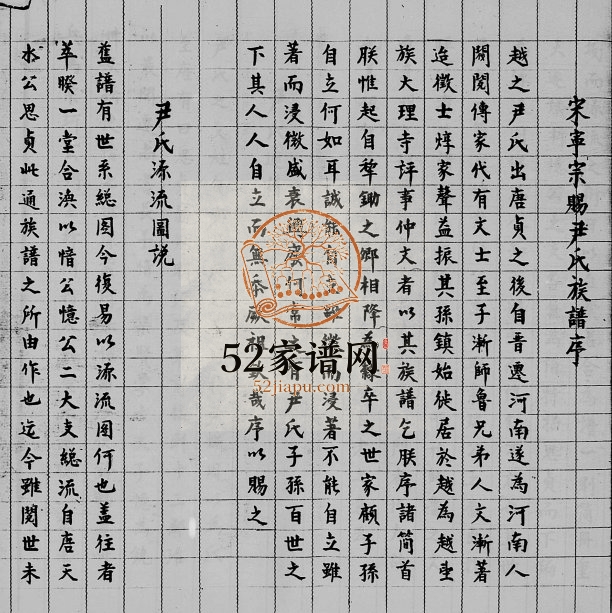 宋寧宗賜尹氏族譜序
越之尹氏出唐貞之後自晋遷河南遂為河南人
閥閱傳家代有文士至子漸師魯兄弟人文漸著
迨徵士焞家聲益振其孫鎮始徙居於越為越望
族大理寺評事仲文者以其族譜乞朕序諸簡首
朕惟起自犁鋤之鄉相降為隸卒之世家顧子孫
自立何如耳誠能自立雖微而浸著不能自立雖
著而浸微盛衰興廢何常之有尹氏子孫百世之
下其人人自立而無忝厥祖哉序以賜之
尹氏源流圖說
舊譜有世系總圖今復易以源流图何也蓋往者
萃暌一堂合渙以愔公憶公二大支總流自唐天
水公思貞此通族譜之所由作也迄今雖閱世未
52家谱网
52jiapu.com